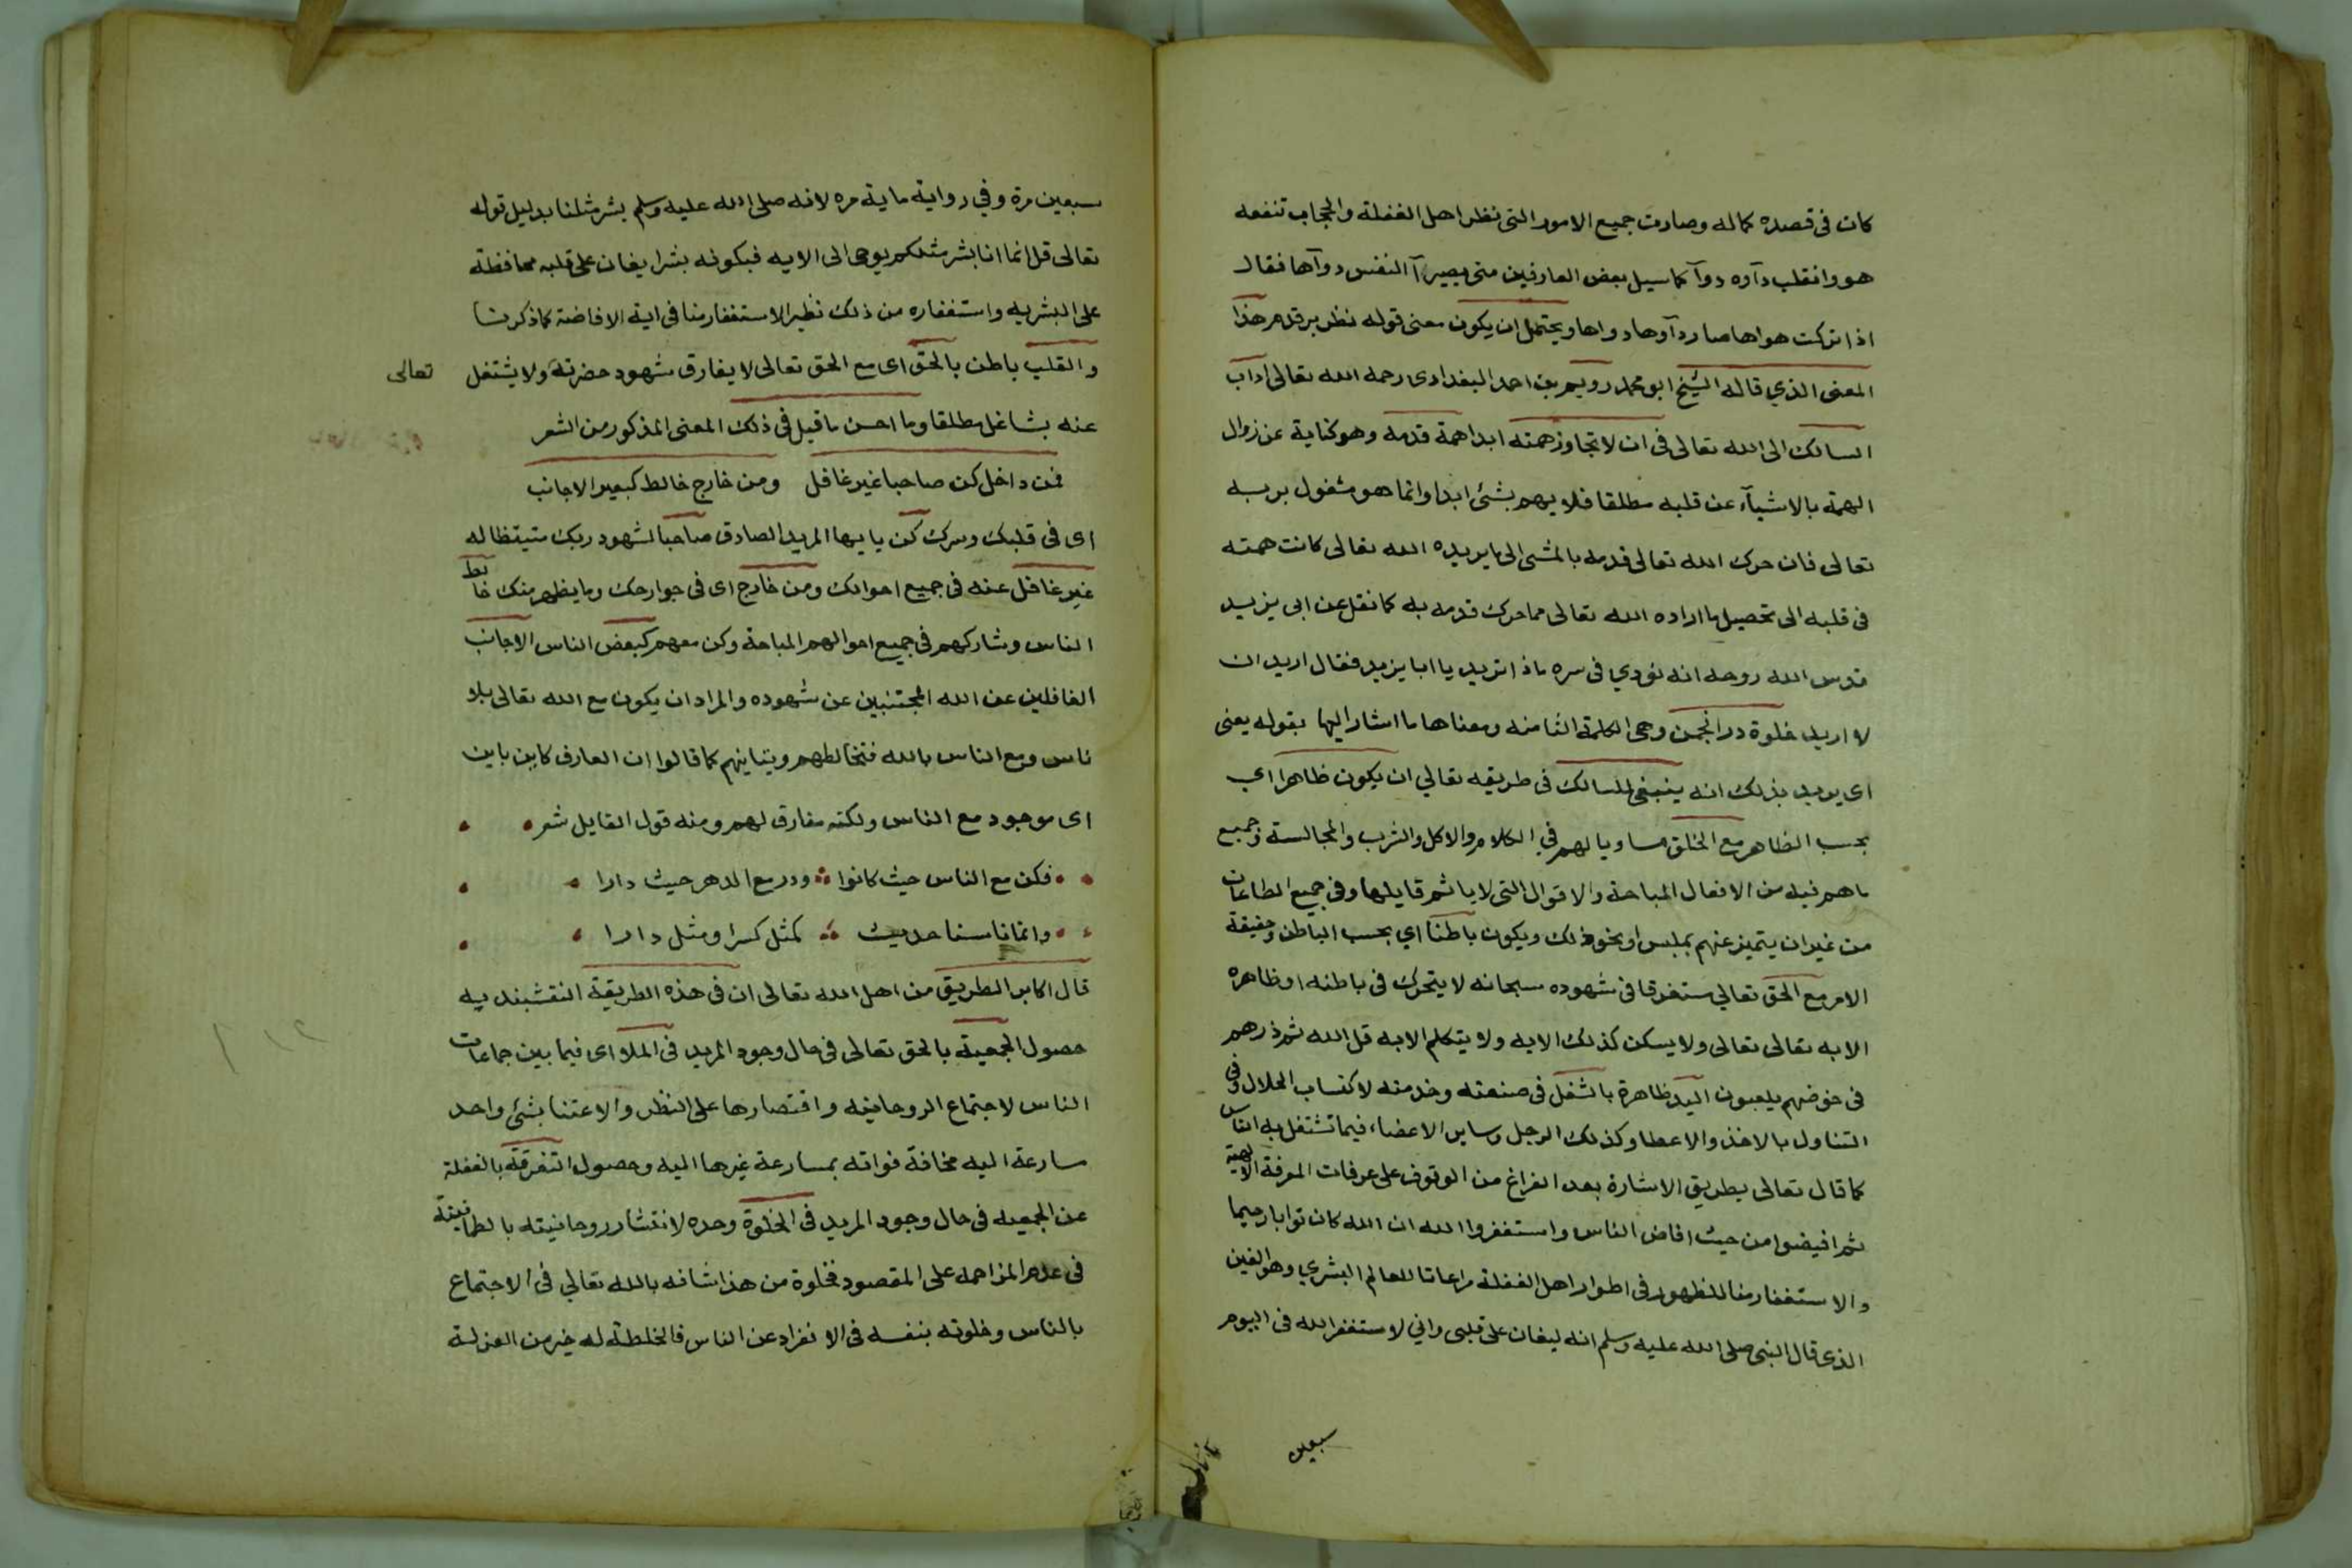 كان فى قصده كماله وصارت جميع الامور التى نظر اهل الغفلة والحجاب تنفعه
هو وانقلب دآوه دوآ كما سيل بعض العارفين متى يصير آ النفس دوآها فقال
اذا تركت هواها صار دآوها دواها ويحتمل ان يكون معنى قوله نظر بر قدم هذا
المعنى الذي قاله الشيخ ابو محمد رويم بن احمد البغدادى رحمه الله تعالى اداب
السالك الى الله تعالى فى ان لا تجاوز همته ابدا همة قدمه وهو كناية عن زوال
الهمة بالاشيآء عن قلبه مطلقا فلا يهم بشئ ابدا وانما هو مشغول بربه
تعالى فان حرك الله تعالى قدمه بالمشى الى ما يريده الله تعالى كانت همته
فى قلبه الى تحصيل ما اراده الله تعالى مما حرك قدمه به كما نقل عن ابى يزيد
قدس الله روحه انه نودي فى سره ماذا تريد يا ابا يزيد فقال اريد ان
لا اريد خلوة در انجمن وهى الكلمة الثامنه ومعناها ما اشار اليها بقوله يعنى
اى يريد بذلك انه ينبغى للسالك فى طريقه تعالي ان يكون ظاهرا اي
بحسب الظاهر مع الخلق مساويا لهم في الكلام والاكل والشرب والمجالسة وجميع
ما هم فيه من الافعال المباحة والاقوال التى لا ياثم قايلها وفى جميع الطاعات
من غير ان يتميز عنهم بملبس او نحو ذلك ويكون باطنا اي بحسب الباطن وحقيقة
الامر مع الحق تعالي مستغرقا فى شهوده سبحانه لا يتحرك فى باطنه او ظاهره
الا به تعالى تعالى ولا يسكن كذلك الا به ولا يتكلم الا به قل الله ثم ذرهم
فى خوضهم يلعبون اليد ظاهرة بالشغل فى صنعته وخدمته لاكتساب الحلال وفى
التناول بالاخذ والاعطا وكذلك الرجل وساير الاعضاء فيما تشتغل به الناس
كما قال تعالى بطريق الاشارة بعد الفراغ من الوقوف على عرفات المعرفة الالهية
ثم افيضوا من حيث افاض الناس واستغفروا الله ان الله كان توابا رحيما
والاستغفار منا للظهور فى اطوار اهل الغفلة مراعاتا للعالم البشري وهو الغين
الذى قال النبى صلى الله عليه وسلم انه ليغان على قلبى واني لاستغفر الله فى اليوم
سبعين
سبعين مرة وفي رواية ماية مره لانه صلى الله عليه وسلم بشر مثلنا بدليل قوله
تعالى قل انما انا بشر مثلكم يوحى الى الايه فبكونه بشرا يغان على قلبه محافظة
على البشريه واستغفاره من ذلك نظير الاستغفار منا فى اية الافاضة كما ذكرنا
والقلب باطن بالحق اى مع الحق تعالى لا يفارق شهود حضرته ولا يشتغل
تعالى
عنه بشاغل مطلقا وما احسن ما قيل فى ذلك المعنى المذكور من الشعر
فمن داخل كن صاحبا غير غافل ومن خارج خالط كبعض الاجانب
اى فى قلبك وسرك كن يا ايها المريد الصادق صاحبا لشهود ربك متيقظا له
غير غافل عنه فى جميع احوالك ومن خارج اى فى جوارحك وما يظهر منك خالط
الناس وشاركهم فى جميع احوالهم المباحة وكن معهم كبعض الناس الاجانب
الغافلين عن الله المجتنبين عن شهوده والمراد ان يكون مع الله تعالى بلا
ناس ومع الناس بالله فتخالطهم وتباينهم كما قالوا ان العارف كاين باين
اى موجود مع الناس ولكنه مفارق لهم ومنه قول القايل شعر
فكن مع الناس حيث كانوا ودر مع الدهر حيث دارا
وانما ناسنا حديث كمثل كسرا ومثل دارا
قال اكابر الطريق من اهل الله تعالى ان فى هذه الطريقة النقشبنديه
حصول الجمعية بالحق تعالى فى حال وجود المريد فى الملا اى فيما بين جماعات
الناس لاجتماع الروحانيه واقتصارها على النظر والاعتنا بشئ واحد
سارعة اليه مخافة فواته بمسارعة غيرها اليه وحصول التفرقة بالغفلة
عن الجمعيه فى حال وجود المريد فى الخلوة وحده لانتشار روحانيته بالطمانينة
فى عدم المزاحمه على المقصود فخلوة من هذا شانه بالله تعالي فى الاجتماع
بالناس وخلوته بنفسه فى الانفراد عن الناس فالخلطة له خير من العزلة